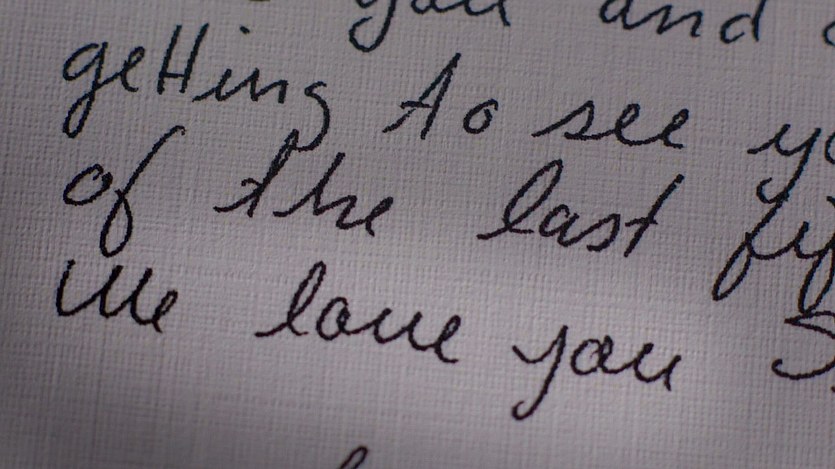 you and
getting to see
of the last
We love you